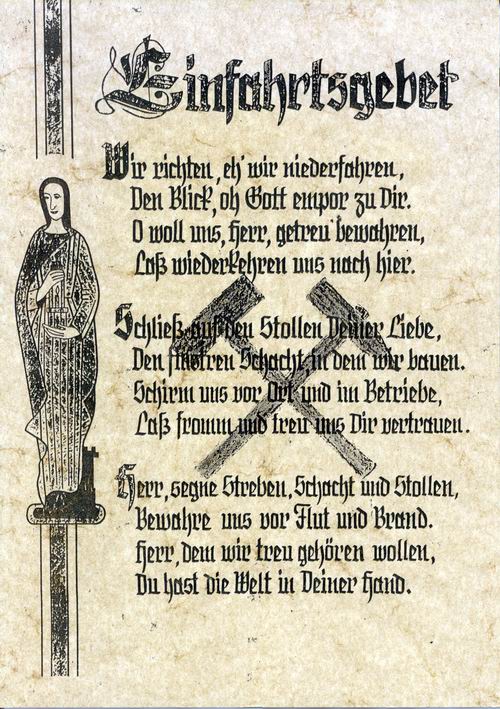 Einfahrtsgebet
Wir richten, eh' wir niederfahren,
Den Blick, oh Gott empor zu Dir.
O woll uns, Herr, getreu bewahren,
Laß wiederkehren uns nach hier.
Schließ auf den Stollen Deiner Liebe,
Den finstren Schacht in dem wir bauen.
Schirm uns vor Ort und im Betriebe,
Laß fromm und treu uns Dir vertrauen.
Herr, segne Streben, Schacht und Stollen,
Bewahre uns vor Flut und Brand.
Herr, dem wir treu gehören wollen,
Du hast die Welt in Deiner Hand.